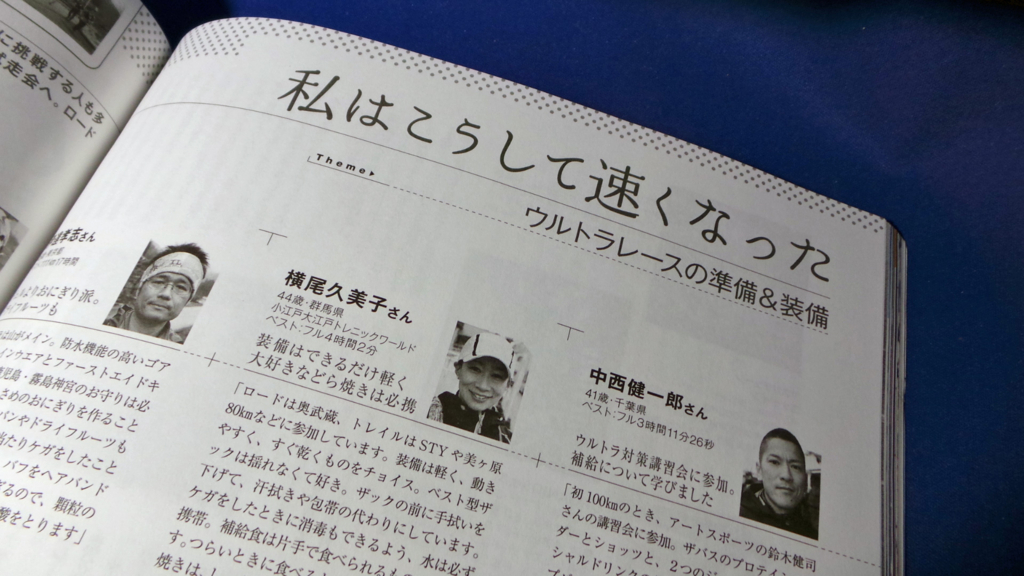 に挑戦する人も多
走会へ。ロード
私はこうして速くなった
Theme▶
ウルトラレースの準備＆装備
さん
よりおにぎり派。
フルーツも
がメイン。防水機能の高いゴア
インウエアとファーストエイドキ
霧島神宮のお守りは必
さめのおにぎりを作ること
パンやドライフルーツも
当たりケガをしたこと
バフをヘアバンド
るので、顆粒の
酸をとります」
横尾久美子さん
44歳・群馬県
小江戸大江戸トレニックワールド
ベスト:フル4時間2分
装備はできるだけ軽く
大好きなどら焼きは必携
「ロードは奥武蔵、トレイルはSTYや美ヶ原
80kmなどに参加しています。装備は軽く、動き
やすく、すぐ乾くものをチョイス。ベスト型ザ
ックは揺れなくて好き。ザックの前に手拭いを
下げて、汗拭きや包帯の代わりにしています。
ケガをしたときに消毒もできるよう、水は必ず
携帯。補給食は片手で食べられるもの
す。つらいときに食べると
焼きは、
中西健一郎さん
41歳・千葉県
ベスト:フル3時間11分26秒
ウルトラ対策講習会に参加。
補給について学びました
「初100kmのとき、アートスポーツの鈴木健司
さんの講習会に参加。ザバスのプロテイン
ダーとショッツ、と2つの
シャルドリンク